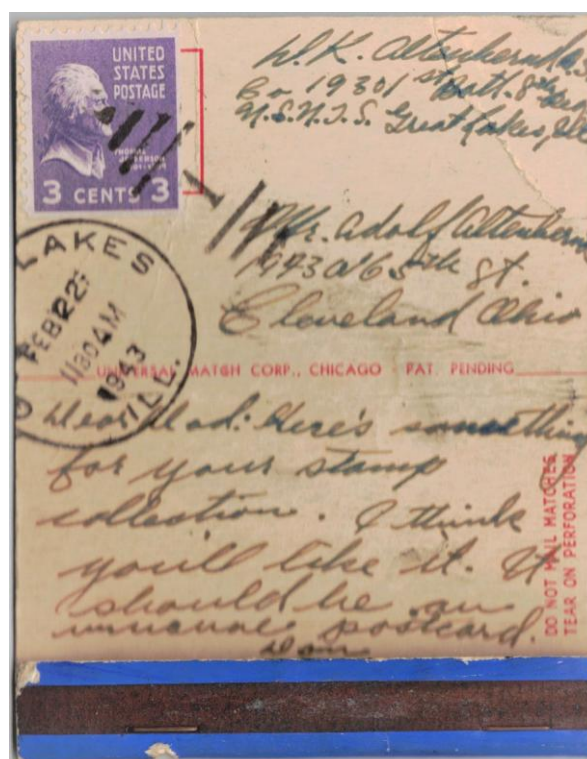 UNITED
STATES
POSTAGE
THOMAS
JEFFERSON
3 CENTS 3
D.K. Altenhernd
Co 1930 1st Batt. 8th
U.S.N.T.S. Great Lakes, Ill
LAKES
FEB 22
1130 AM
1943
ILL.
Mr. Adolf Altenhern
1943 65th St.
Cleveland Ohio
UNIVERSAL MATCH CORP., CHICAGO PAT. PENDING
Dear Dad: Here's something
for your stamp
collection. I think
you'll like it. It
should be an
unusual postcard.
Don
DO NOT MAIL MATCHES
TEAR ON PERFORATION